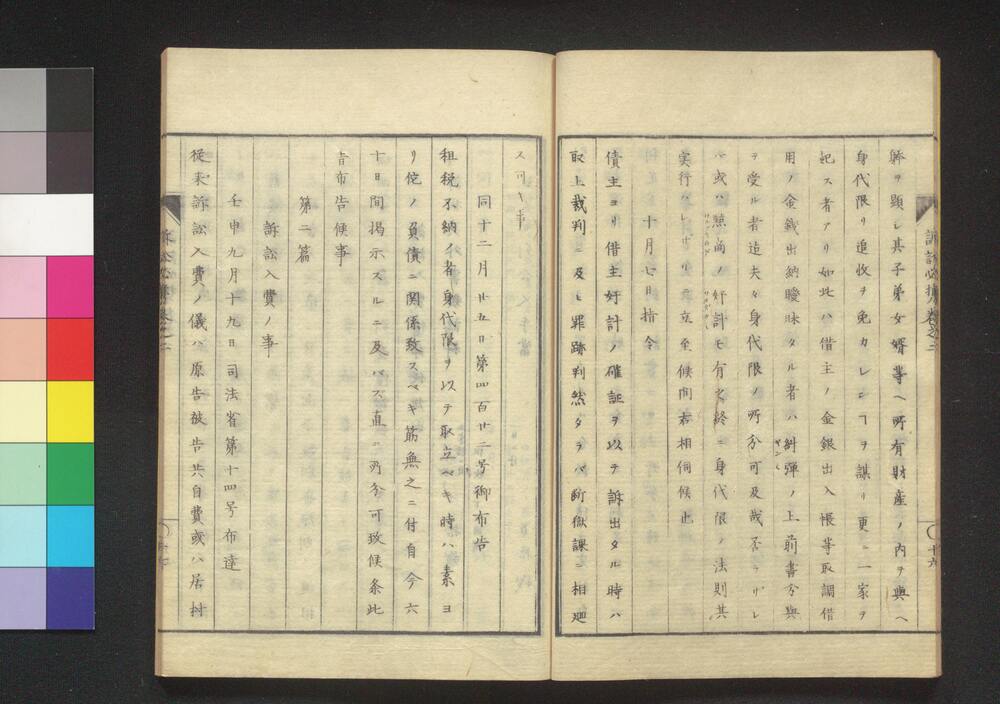 幹ヲ顕レ其子弟女婿等ヘ所有財産ノ内ヲ與ヘ
身代限リ追收ヲ免カレンヿヲ謀リ更ニ一家ヲ
起ス者アリ如此ハ借主ノ金銀出入帳等取調借
用ノ金銭出納曖昧タル者ハ糾弾ノ上前書分與
ヲ受ル者迄夫々身代限ノ所分可及哉否ラザレ
ハ或ハ黠商ノ奸計モ有之終ニ身代限ノ法則其
実行ハレザルニ立至候間右相伺候也
十月七日指令
債主ヨリ借主奸計ノ確証ヲ以テ訴出タル時ハ
取上裁判ニ及ヒ罪跡判然タラバ断獄課ニ相廻
訴訟必携巻之二
十六
ス可キ事
同十二月廿五日第四百廿二号御布告
租税不納ノ者身代限ヲ以テ取立ベキ時ハ素ヨ
リ佗ノ負債ニ関係致スベキ筋無之ニ付自今六
十日間掲示スルニ及バス直ニ所分可致候条此
旨布告候事
第二篇
訴訟入費ノ事
壬申九月十九日司法省第十四号布達
従来訴訟入費ノ儀ハ原告被告共自費或ハ居村
訴訟必携巻之二